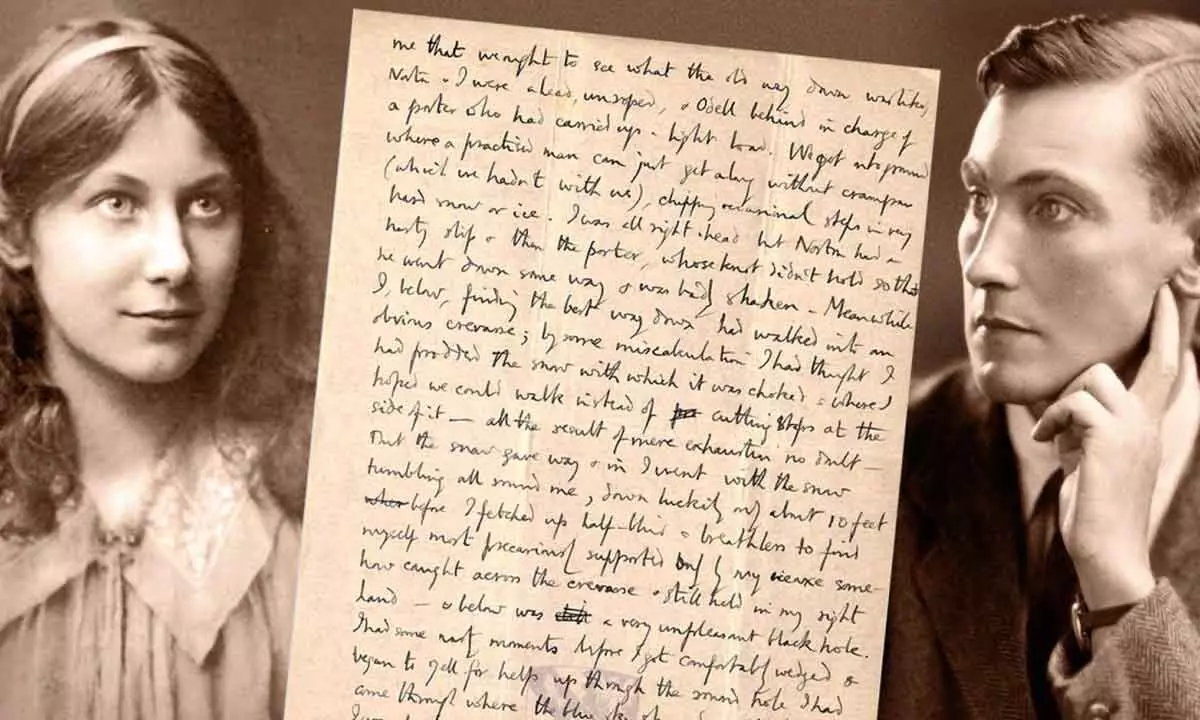 me that we ought to see what the old way down was like,
Norton & I were ahead unroped, & Odell behind in charge of
a porter who had carried up a light load. We got onto ground
where a practised man can just get along without crampons
(which we hadn't with us), chipping occasional steps in very
hard snow or ice. I was all right ahead but Norton had a
nasty slip & then the porter, whose knot didn't hold so that
he went down some way & was badly shaken. Meanwhile
I, below, finding the best way down had walked into an
obvious crevasse; by some miscalculation I had thought I
had prodded the snow with which it was choked & where I
hoped we could walk instead of cutting steps at the
side of it — all the result of mere exhaustion no doubt —
But the snow gave way & in I went with the snow
tumbling all round me, down luckily only about 10 feet
before I fetched up half-blind & breathless to find
myself most precariously supported only by my ice axe some-
how caught across the crevasse & still held in my right
hand — & below was a very unpleasant black hole.
I had some nasty moments before I got comfortably wedged &
began to yell for help up through the round hole I had
come through where the blue sky